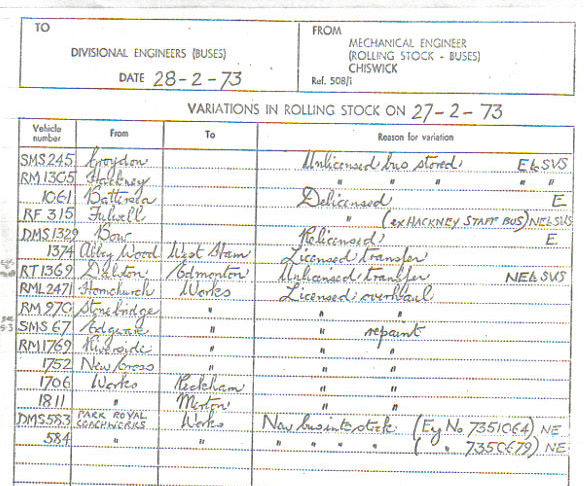 TO
DIVISIONAL ENGINEERS (BUSES)
DATE 28-2-73
FROM
MECHANICAL ENGINEER
(ROLLING STOCK - BUSES)
CHISWICK
Ref. 508/i
VARIATIONS IN ROLLING STOCK ON 27-2-73
Vehicle number From To Reason for variation
SMS 245 Croydon Unlicensed bus stored E&SVS
RM 1305 Hackney " " " " "
1061 Battersea Delicensed E
RF 315 Fulwell " (ex HACKNEY STAFF BUS) NE&SVS
DMS 1329 Bow Relicensed E
1374 Abbey Wood West Ham Licensed transfer
RT 1369 Dalston Edmonton Unlicensed transfer NE&SVS
RML 2471 Hornchurch Works Licensed overhaul
RM 970 Stonebridge " " "
SMS 67 Edgware " " repaint
RM 1769 Riverside " " "
1752 New Cross " " "
1706 Works Peckham " "
1811 " Merton " "
DMS 583 PARK ROYAL COACHWORKS Works New bus into stock (Eng No 7351064) NE
584 " " " " " " ( " 7350679) NE